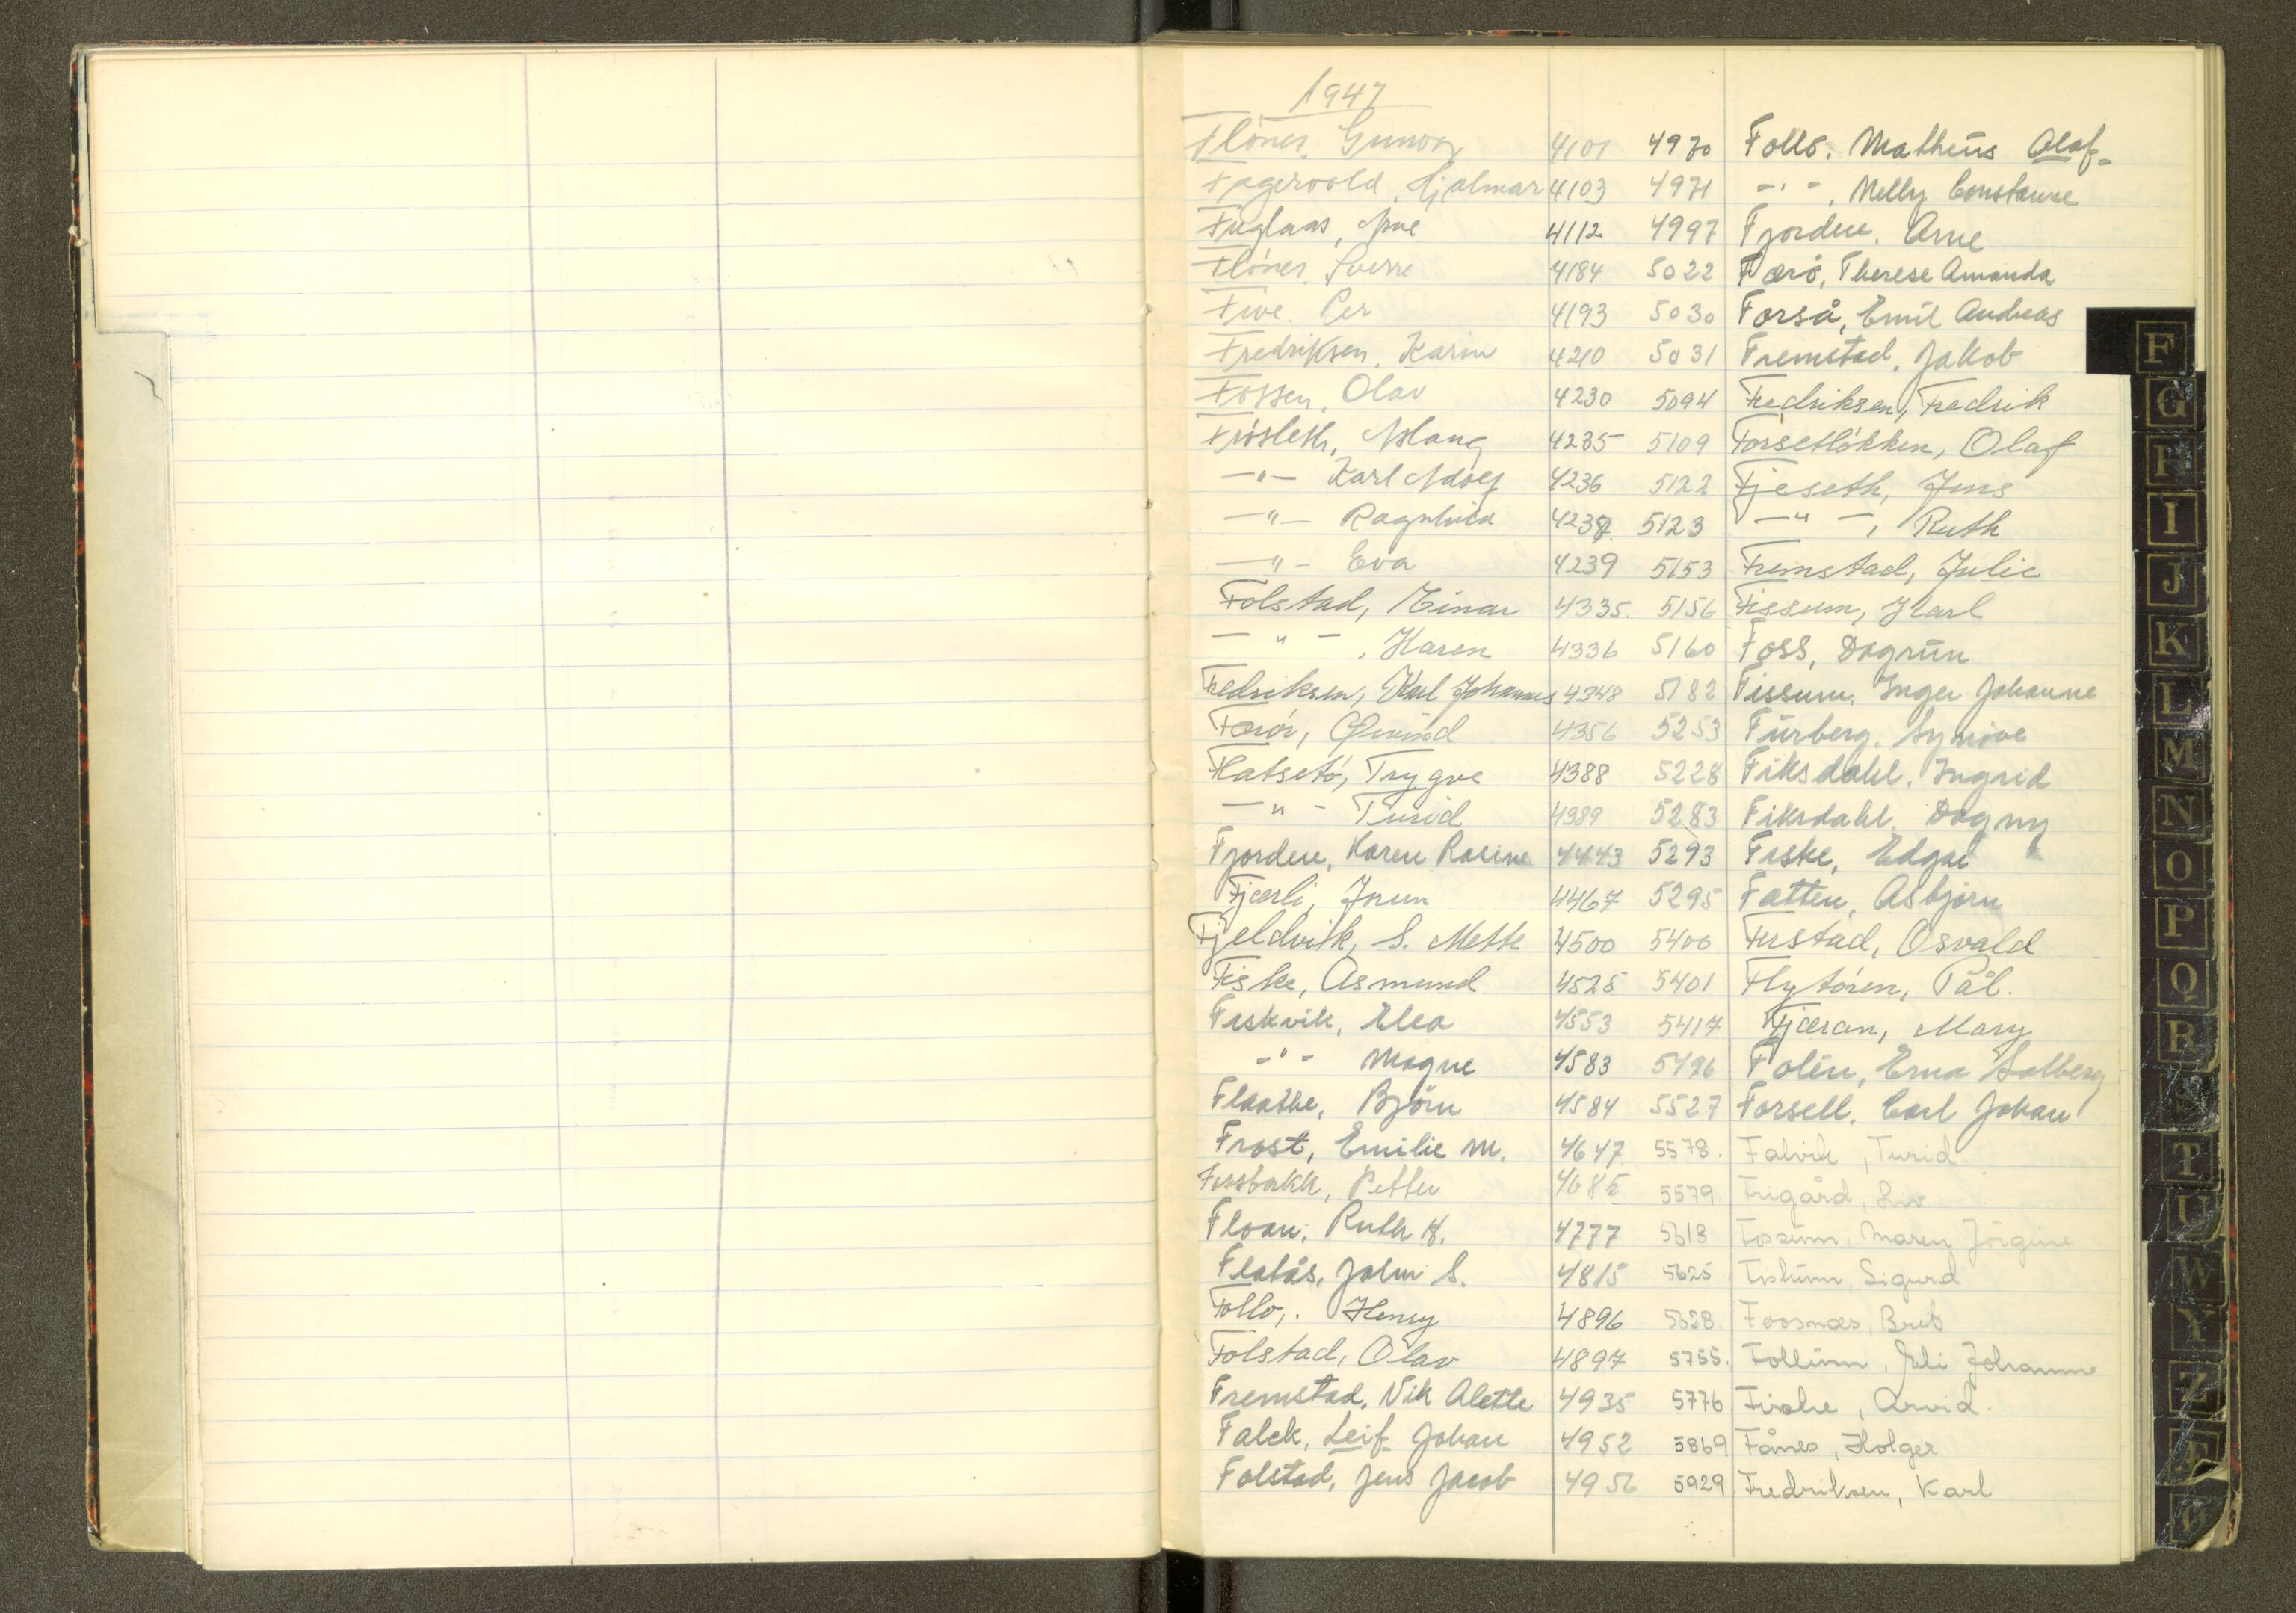 1947
Flönes, Gunvor 4101 4970 Follo, Mathëus Olaf-
Fagervold, Hjalmar 4103 4971 -"-, Nelly Constanse
Fuglaas, Arne 4112 4997 Fjordene, Arne
Flönes, Sverre 4184 5022 Færö, Therese Amanda
Five, Per 4193 5030 Forså, Emil Andreas
Fredriksen, Karin 4210 5031 Fremstad, Jakob
Fossen, Olav 4230 5094 Fredriksen, Fredrik
Frösleth, Aslaug 4235 5109 Forsetlökken, Olaf
-"- Karl Adolf 4236 5122 Fjeseth, Jens
-"- Ragnhild 4238 5123 -"-, Ruth
-"- Eva 4239 5153 Fremstad, Julie
Folstad, Einar 4335. 5156 Fissum, Karl
-"-, Karen 4336 5160 Foss, Dagrün
Fredriksen, Karl Johannes 4348 5182 Fissum, Inger Johanne
Øivind 4356 5253 Fürberg, Synnöve
Flatsetö, Trygve 4388 5228 Fiksdahl, Ingrid
-"- Turid 4389 5283 Fiksdahl, Dagny
Fjordene, Karen Rosine 4443 5293 Fiske, Edgar
Fjærli, Jorun 4467 5295 Fætten, Asbjørn
Fjeldvik, S. Mette 4500 5400 Ferstad, Osvald
Fiske, Åsmund 4525 5401 Flytören, Pål.
Fiskvik, Elea 4553 5417 Fjæran, Mary
-"- Magne 4583 5496 Folen, Erna Solberg
Flaathe, Björn 4584 5527 Forsell, Carl Johan
Frost, Emilie M. 4647 5578. Falvik, Turid.
Fossbakk, Petter 4685 5579. Frigård, Liv
Floan, Ruth K. 4777 5613 Fossum, Maren Jörgine
Flatås, John S. 4815 5625 Sigurd
Follo, Henry 4896 5628. Foosnæs, Brit
Folstad, Olav 4897 5755. Follum, Johanne
Fremstad, Vik Alette 4935 5776 Fiske, Arvid.
Falck, Leif Johan 4952 5869 Fånes, Holger
Folstad, Jens Jacob 4956 5929 Fredriksen, Karl
F
G
H
I
J
K
L
M
N
O
P
Q
R
S
T
U
W
Y
Z